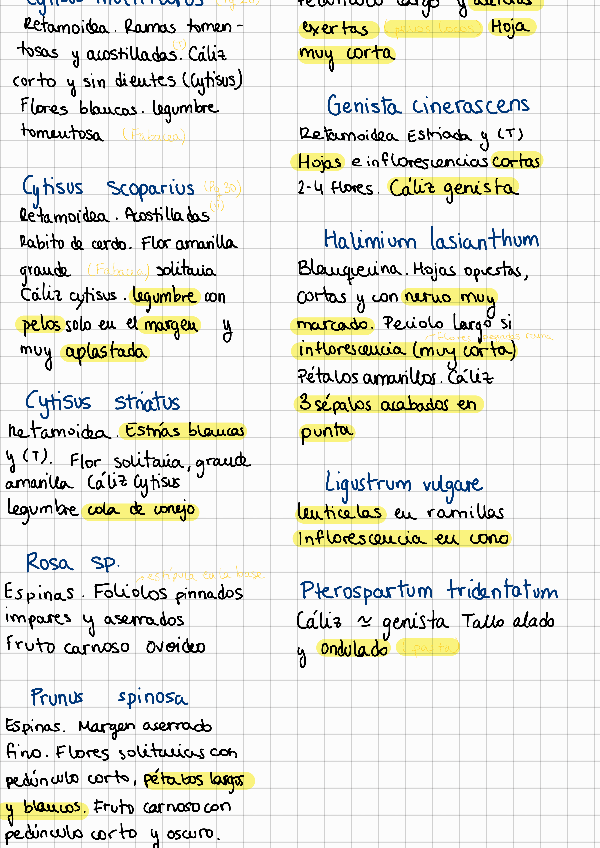 Cytisus multiflorus
Retamoidea. Ramas tomen-
tosas y acostilladas. Cáliz
corto y sin dientes (Cytisus)
Flores blancas. legumbre
tomentosa (Fabacea)
Cytisus scoparius (Pg 30)
Retamoidea. Acostilladas
Rabito de cerdo. Flor amarilla
grande (Fabacea) solitaria
Cáliz cytisus. legumbre con
pelos solo en el margen y
muy aplastada
Cytisus striatus
Retamoidea. Estrías blancas
y (T). Flor solitaria, grande
amarilla Cáliz Cytisus
legumbre cola de conejo
Rosa sp.
→ estípula en su base
Espinas. Foliolos pinnados
impares y aserrados
Fruto carnoso ovoideo
Prunus spinosa
Espinas. Margen aserrado
fino. Flores solitarias con
pedúnculo corto, pétalos largos
y blancos. Fruto carnoso con
pedúnculo corto y oscuro.
exertas Hoja
muy corta
Genista cinerascens
Retamoidea Estriada y (T)
Hojas e inflorescencias cortas
2-4 flores. Cáliz genista
Halimium lasianthum
Blanquecina. Hojas opuestas,
cortas y con nervio muy
marcado. Peciolo largo si
inflorescencia (muy corta)
Pétalos amarillos. Cáliz
3 sépalos acabados en
punta
Ligustrum vulgare
lenticelas en ramillas
Inflorescencia en cono
Pterospartum tridentatum
Cáliz ≃ genista Tallo alado
y ondulado